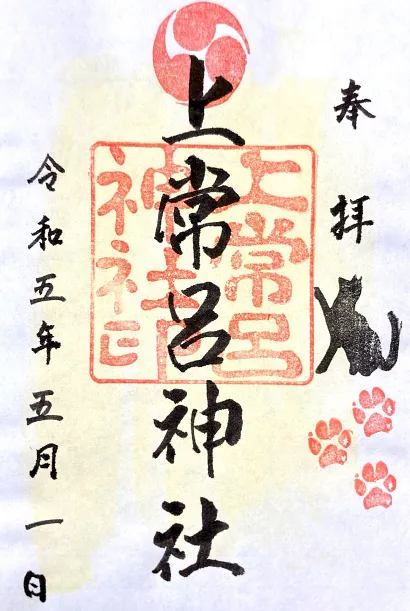 奉拝
上常呂神社
上常呂
神社
神社印
令和五年五月一日